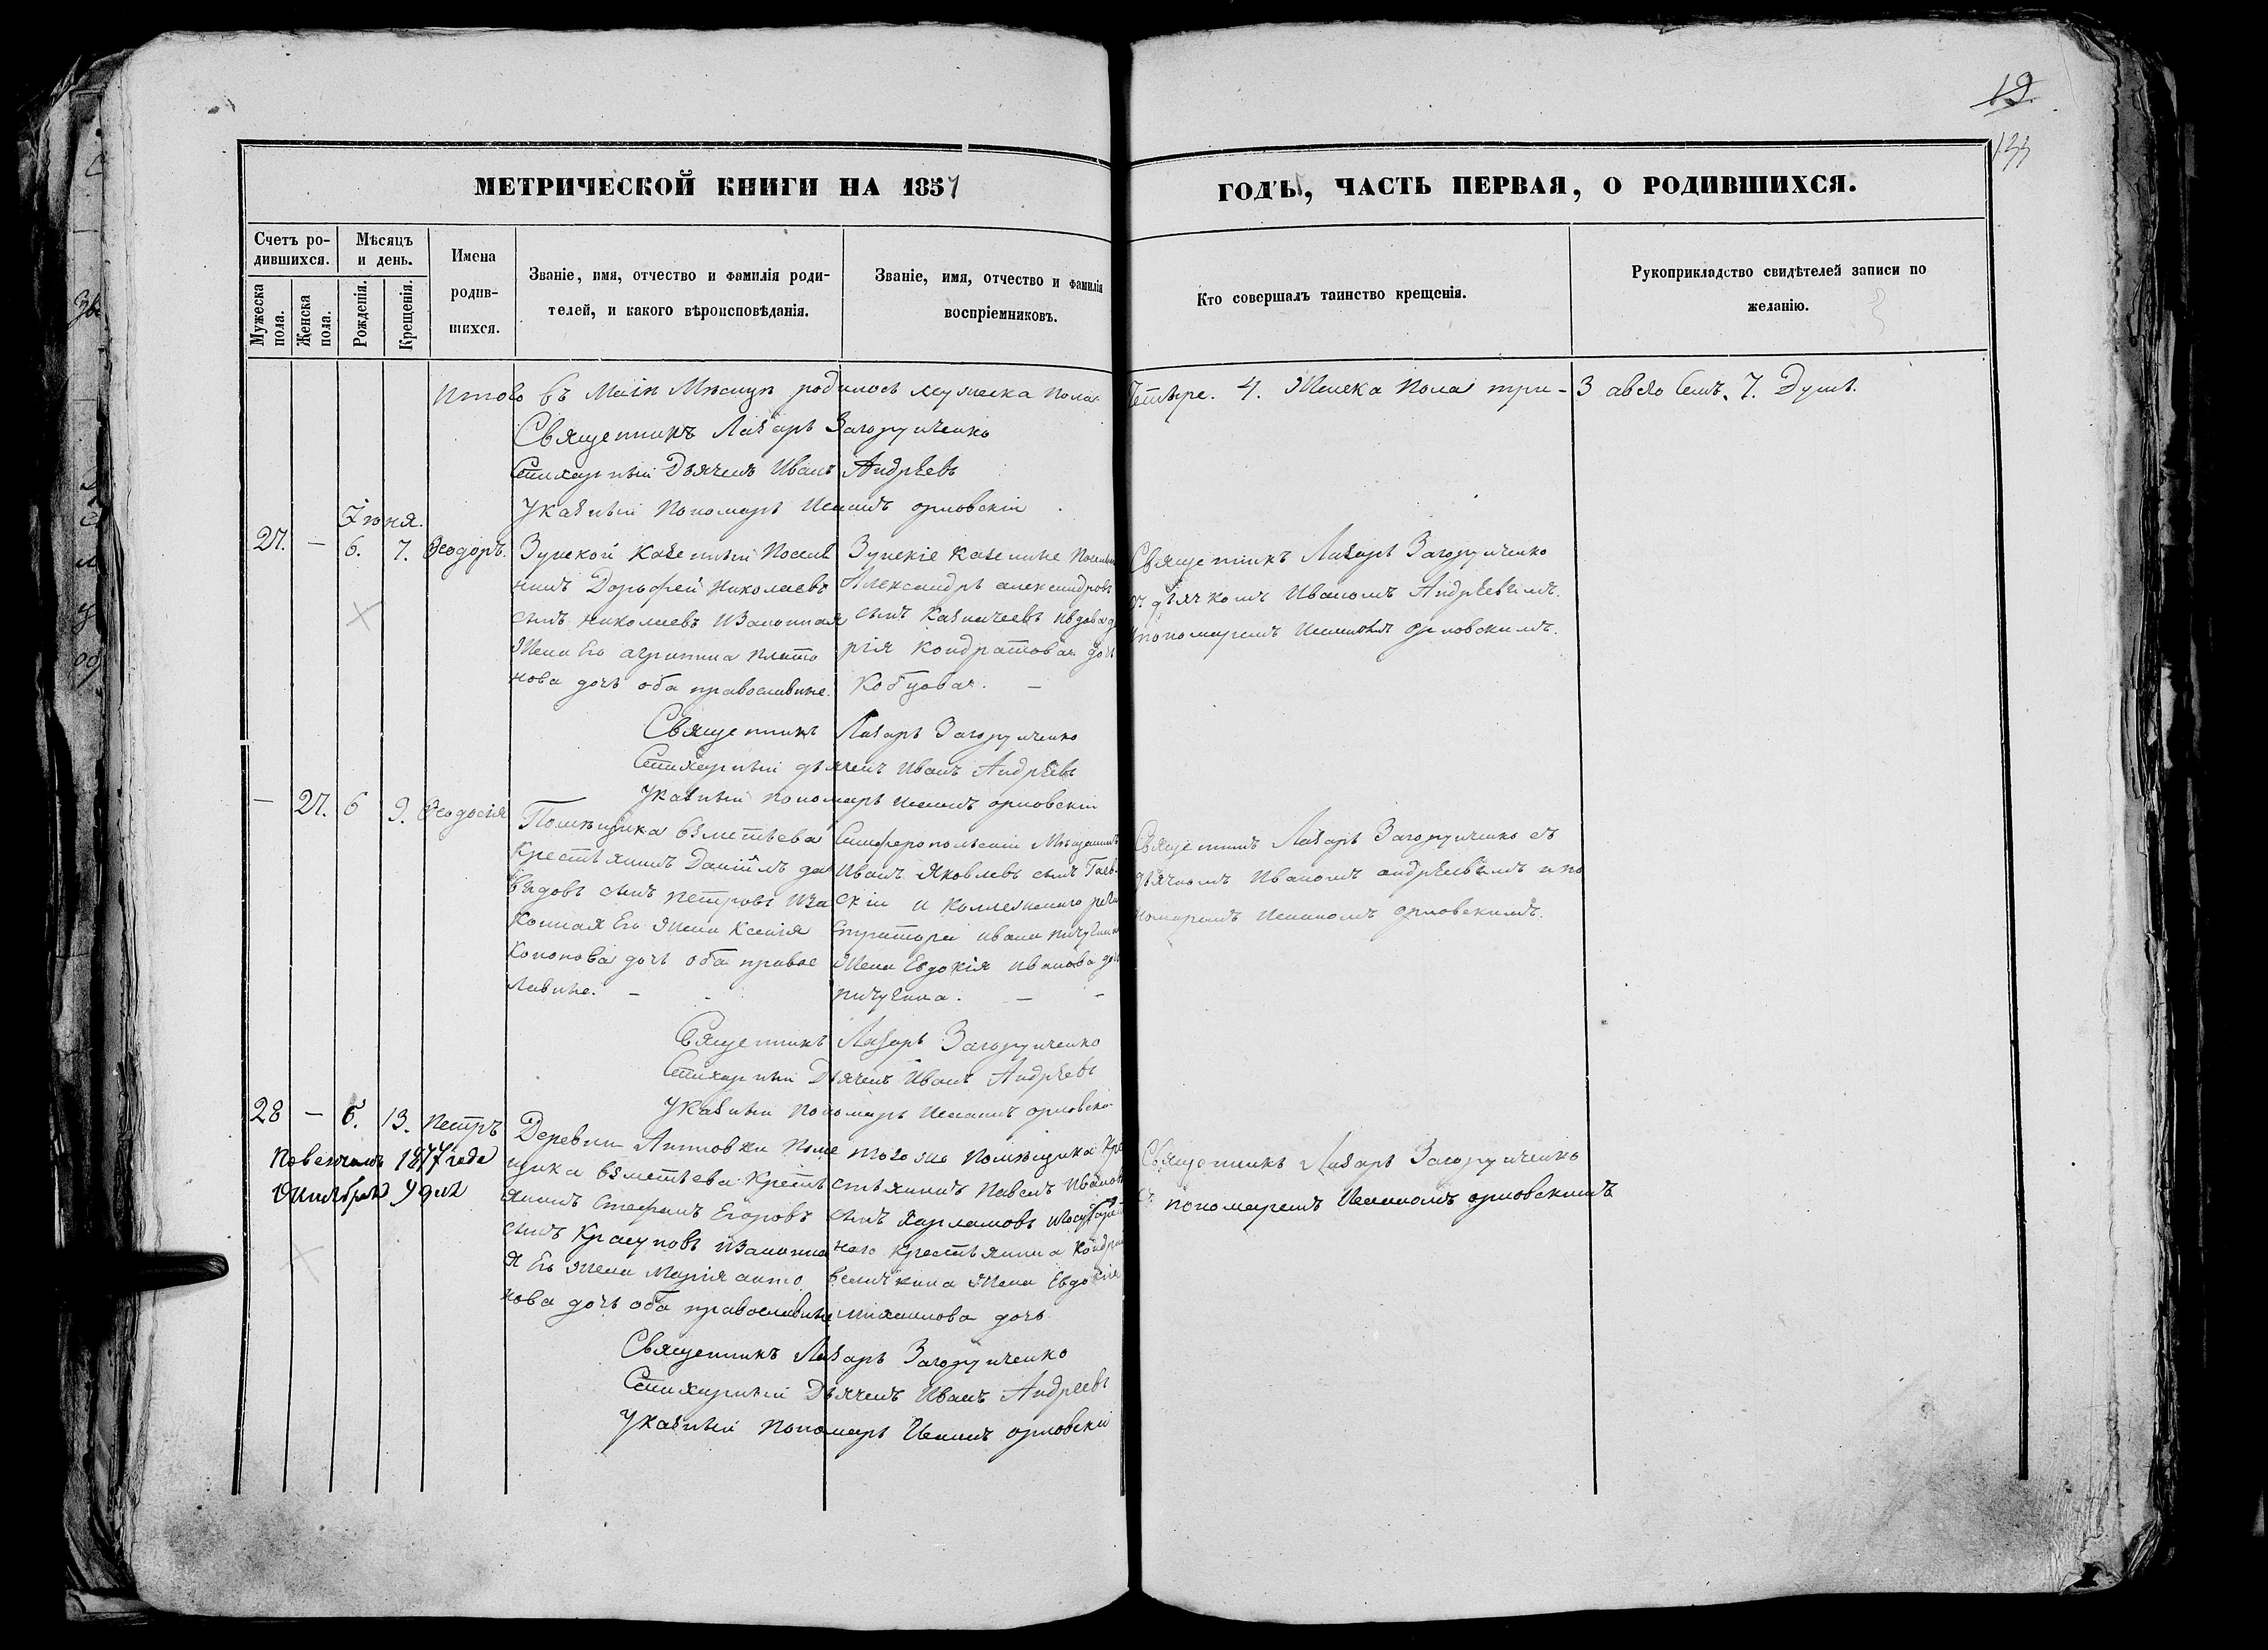 19.
133
МЕТРИЧЕСКОЙ КНИГИ НА 1857 ГОДЪ, ЧАСТЬ ПЕРВАЯ, О РОДИВШИХСЯ.
Счетъ ро-
дившихся.
Мужеска пола.
Женска пола.
Мѣсяцъ
и день.
Рожденія.
Крещенія.
Имена
родив-
шихся.
Званіе, имя, отчество и фамилія роди-
телей, и какого вѣроисповѣданія.
Званіе, имя, отчество и фамилія
воспріемниковъ.
Кто совершалъ таинство крещенія.
Рукоприкладство свидѣтелей записи по
желанію.
Итого въ Маіи Мѣсяцѣ родилось мужеска пола четыре. 4. Женска пола три - 3 Душъ.
Священникъ Лазарь Загоруиченко
Стихарный Дьячекъ Иванъ Андрѣевъ
Указный Пономарь орловскій
Іюня.
27. — 6. 7. Ѳеодоръ.
Зуйской Казенный Посѣля
нинъ Дорофей Николаевъ
сынъ Николаевъ Изаконная
Жена Его агрипина Плато
нова дочь оба православные.
Зуйскіе казенные
Александръ александровъ
сынъ Казначеевъ
рія Кондратова дочь
Кобцовая. —
Священникъ Лазарь Загоруиченко
дьячкомъ Иваномъ Андрѣевымъ.
пономаремъ орловскимъ.
Священникъ Лазарь Загоруиченко
Стихарный дьячекъ Иванъ Андрѣевъ
Указный пономарь орловскій
— 27. 6 9. Ѳеодосія
Помѣщика
Крестьянинъ Даніилъ да
видовъ сынъ Петровъ Иза
конная Его Жена Ксенія
Кононова дочь оба правос
лавные. —
Симферопольскій Мѣщанинъ
Иванъ Яковлевъ сынъ Гаев-
скій и Коллежскаго реги
стратора ивана пичугина
Жена Евдокія иванова дочь
пичугина. —
Священникъ Лазарь Загоруиченко съ
дьячкомъ Иваномъ андрѣевымъ и по
номаремъ орловскимъ.
Священникъ Лазарь Загоруиченко
Стихарный Дьячекъ Иванъ Андрѣевъ
Указный Пономарь орловскій
28 — 6. 13. Петръ
Повенчанъ 1877 года
9 дня
Деревни Помѣ
щика Кресть
янинъ Стефанъ Егоровъ
сынъ Красуновъ изаконна
я Его Жена Марія анто
нова дочь оба православные
того же помѣщика Кре
стьянинъ Павелъ Ивановъ
сынъ Харламовъ
наго крестьянина
величкина Жена Евдокія
михаилова дочь
Священникъ Лазарь Загоруиченко
съ пономаремъ орловскимъ
Священникъ Лазарь Загоруиченко
Стихарный Дьячекъ Иванъ Андреевъ
Указный пономарь орловскій